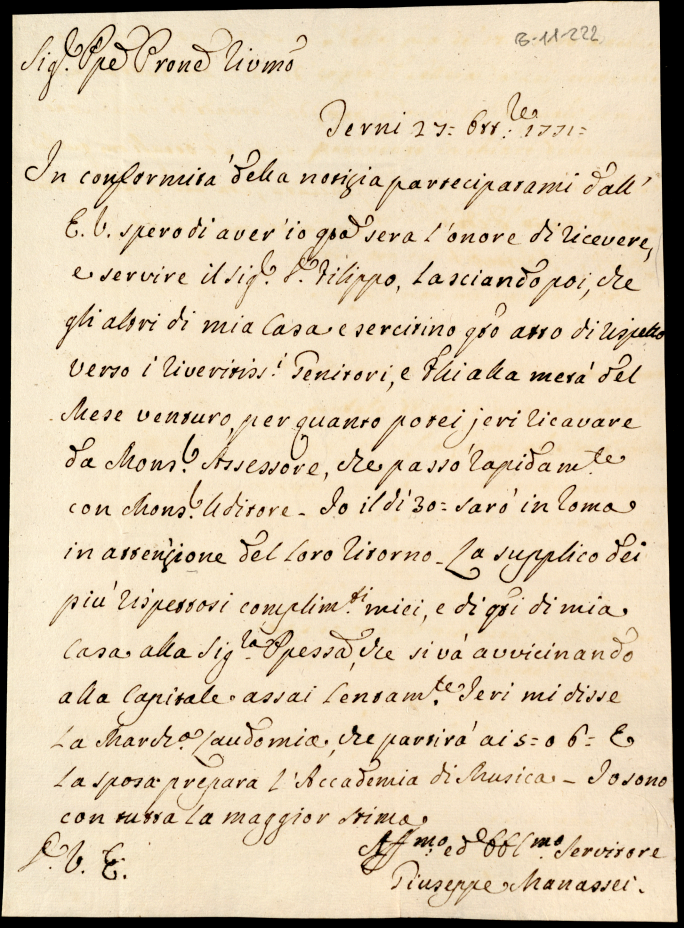 B-11-222
Sig.r Ppe Prone Rivmo
Terni 27= Ott.re 1771=
In conformità della notizia partecipatami dall'
E. V. spero di aver' io qsta sera l'onore di ricevere,
e servire il Sig.r D. Filippo, lasciando poi, che
gli altri di mia Casa esercitino qsto atto di rispetto
verso i riveritiss.i Genitori, e Zii alla metà del
Mese venturo, per quanto potei jeri ricavare
da Mons.r Assessore, che passò rapidam.te
con Mons.r Uditore - Io il dì 30= sarò in Roma
in attenzione del loro ritorno - La supplico dei
più rispettosi complim.ti miei, e di qti di mia
Casa alla Sig.ra Ppessa, che si và avvicinando
alla Capitale assai lentam.te Jeri mi disse
la March.a Laudomia, che partirà ai 5= o 6= E
la sposa prepara l'Accademia di Musica - Io sono
con tutta la maggior stima
D. V. E.
Aff.mo ed Obbl.mo Servitore
Giuseppe Manassei.